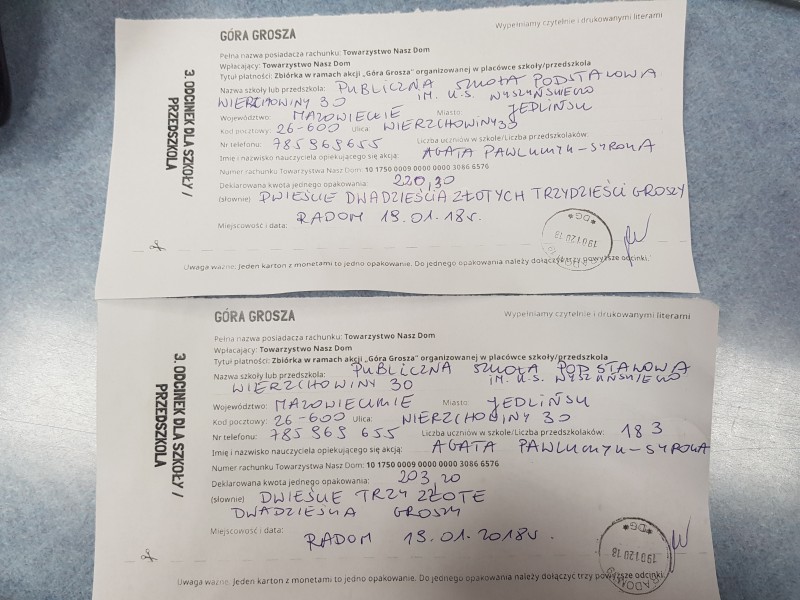 GÓRA GROSZA
Wypełniamy czytelnie i drukowanymi literami
3. ODCINEK DLA SZKOŁY / PRZEDSZKOLA
Pełna nazwa posiadacza rachunku: Towarzystwo Nasz Dom
Wpłacający: Towarzystwo Nasz Dom
Tytuł płatności: Zbiórka w ramach akcji „Góra Grosza" organizowanej w placówce szkoły/przedszkola
Nazwa szkoły lub przedszkola: PUBLICZNA SZKOŁA PODSTAWOWA
WIERZCHOWINY 30 IM. K.S. WYSZYŃSKIEGO
Województwo: MAZOWIECKIE Miasto: JEDLIŃSK
Kod pocztowy: 26-600 Ulica: WIERZCHOWINY 30
Nr telefonu: 785969655 Liczba uczniów w szkole/Liczba przedszkolaków:
Imię i nazwisko nauczyciela opiekującego się akcją: AGATA PAWLUCZYK-SYROKA
Numer rachunku Towarzystwa Nasz Dom: 10 1750 0009 0000 0000 3086 6576
Deklarowana kwota jednego opakowania: 220,30
(słownie) DWIEŚCIE DWADZIEŚCIA ZŁOTYCH TRZYDZIEŚCI GROSZY
Miejscowość i data: RADOM 19.01.18r.
Uwaga ważne: Jeden karton z monetami to jedno opakowanie. Do jednego opakowania należy dołączyć trzy powyższe odcinki.
GÓRA GROSZA
Wypełniamy czytelnie i drukowanymi literami
3. ODCINEK DLA SZKOŁY / PRZEDSZKOLA
Pełna nazwa posiadacza rachunku: Towarzystwo Nasz Dom
Wpłacający: Towarzystwo Nasz Dom
Tytuł płatności: Zbiórka w ramach akcji „Góra Grosza" organizowanej w placówce szkoły/przedszkola
Nazwa szkoły lub przedszkola: PUBLICZNA SZKOŁA PODSTAWOWA
WIERZCHOWINY 30 IM. K.S. WYSZYŃSKIEGO
Województwo: MAZOWIECKIE Miasto: JEDLIŃSK
Kod pocztowy: 26-600 Ulica: WIERZCHOWINY 30
Nr telefonu: 785 969 655 Liczba uczniów w szkole/Liczba przedszkolaków: 183
Imię i nazwisko nauczyciela opiekującego się akcją: AGATA PAWLUCZYK-SYROKA
Numer rachunku Towarzystwa Nasz Dom: 10 1750 0009 0000 0000 3086 6576
Deklarowana kwota jednego opakowania: 203,20
(słownie) DWIEŚCIE TRZY ZŁOTE
DWADZIEŚCIA GROSZY
Miejscowość i data: RADOM 19.01.2018r.
Uwaga ważne: Jeden karton z monetami to jedno opakowanie. Do jednego opakowania należy dołączyć trzy powyższe odcinki.